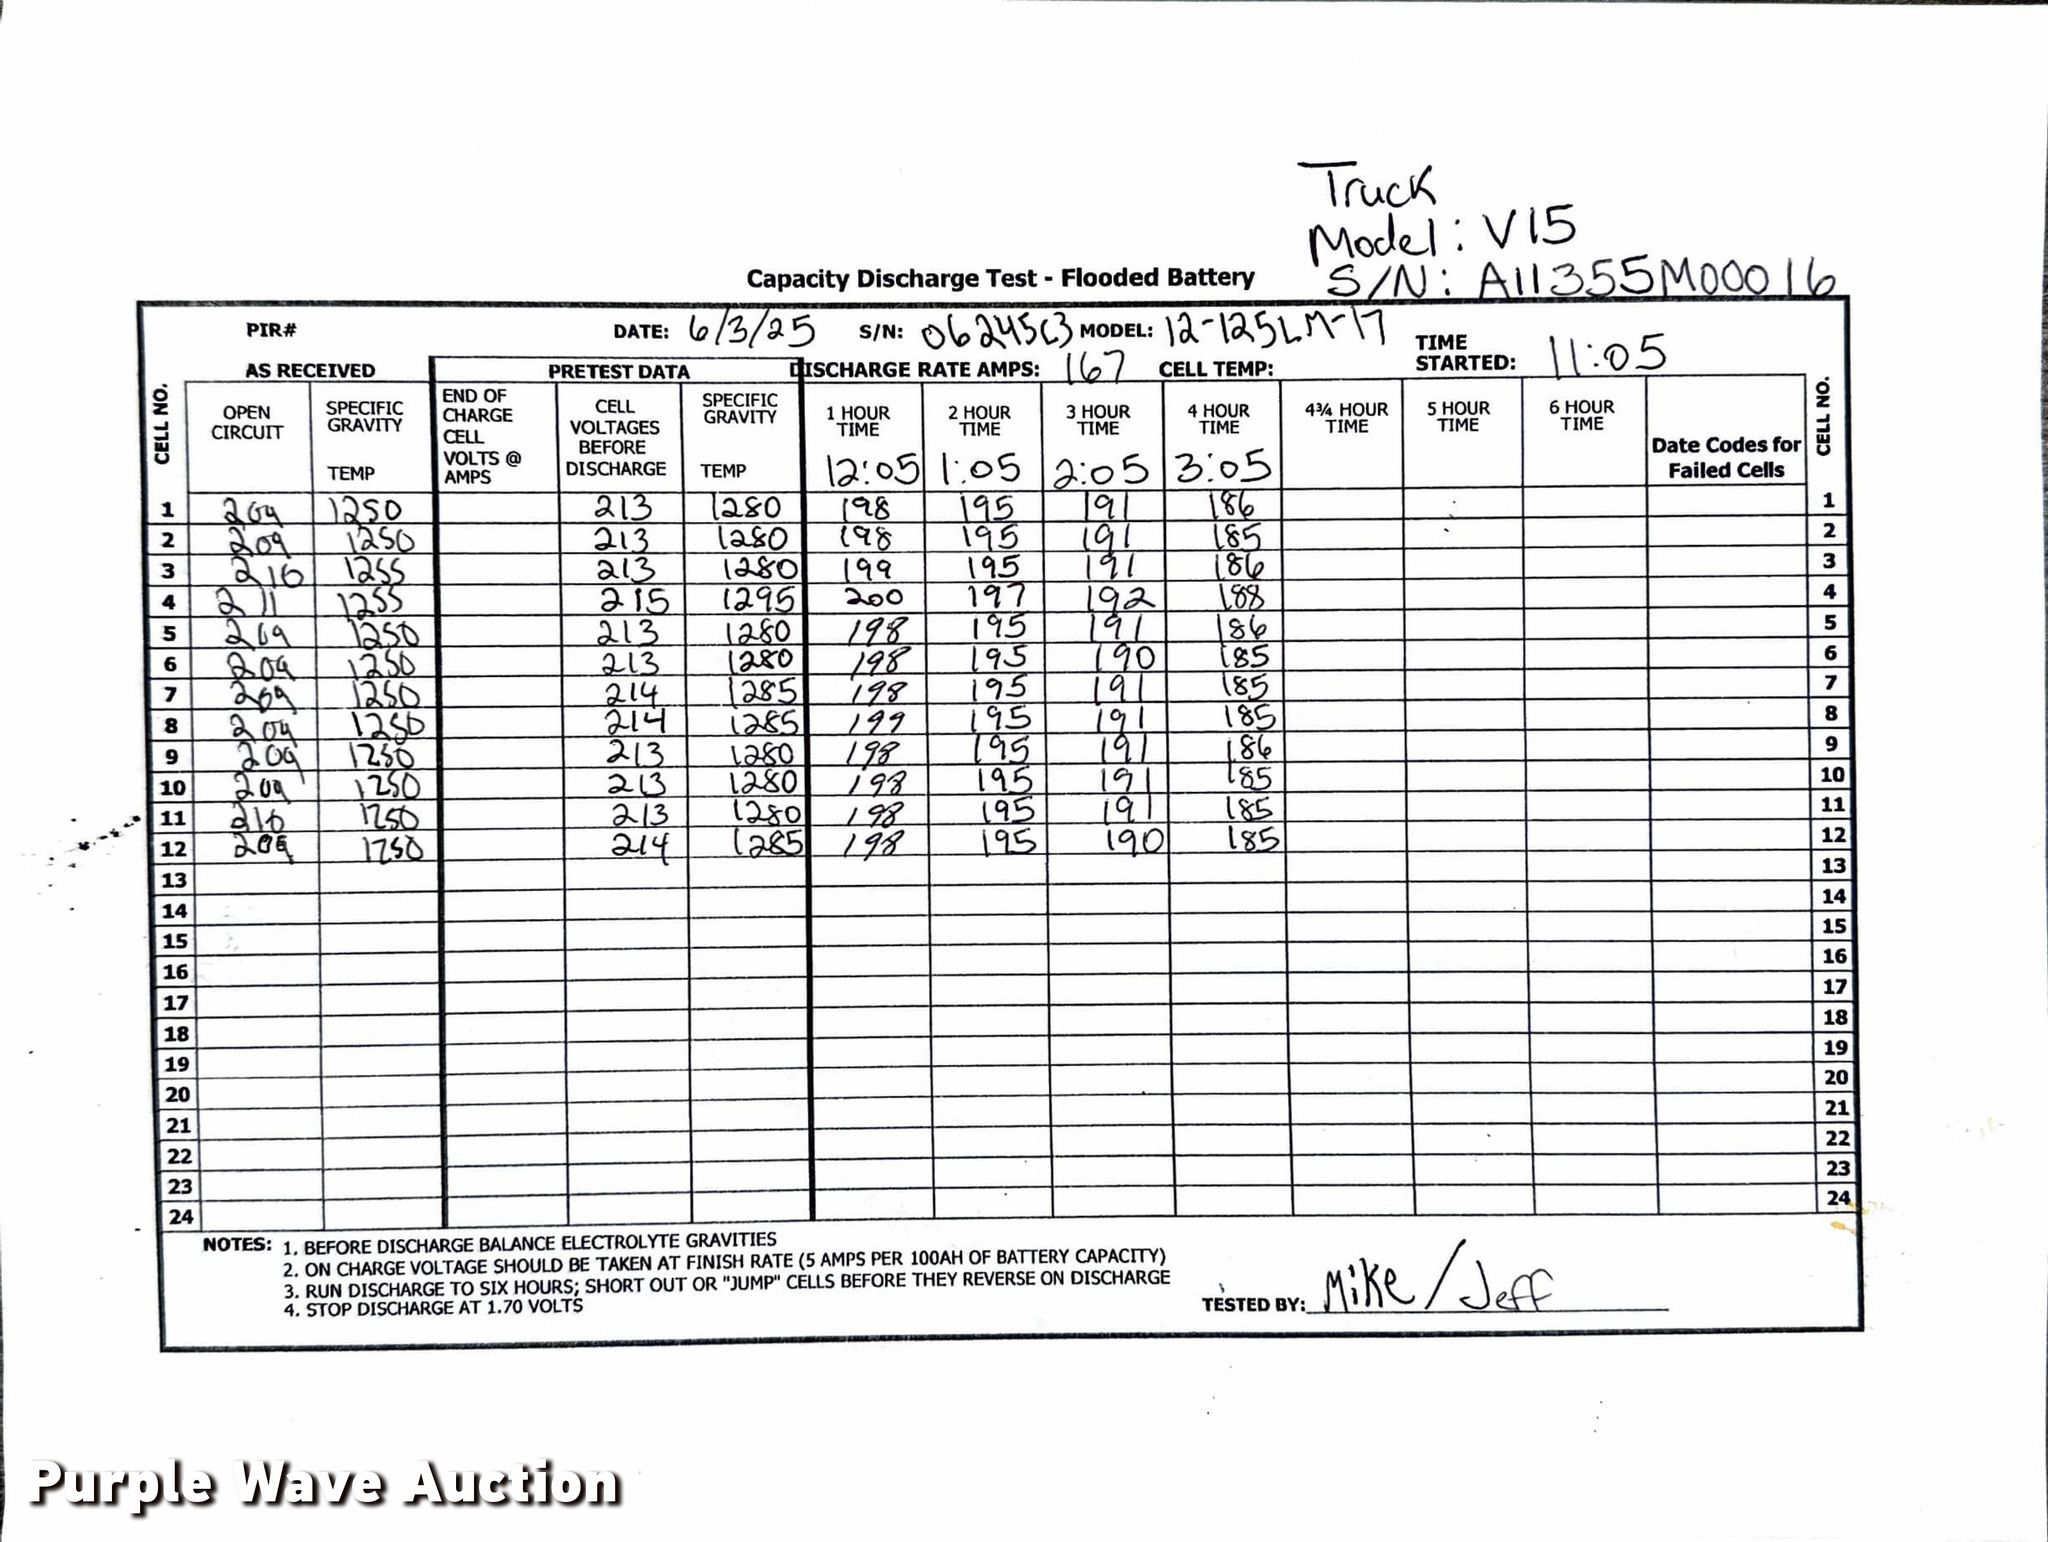 Truck
Model: V15
S/N: A11355M00016
Capacity Discharge Test - Flooded Battery
PIR# DATE: 6/3/25 S/N: 06245C3 MODEL: 12-125LM-17 TIME STARTED: 11:05
AS RECEIVED PRETEST DATA DISCHARGE RATE AMPS: 167 CELL TEMP:
CELL NO. OPEN CIRCUIT SPECIFIC GRAVITY TEMP END OF CHARGE CELL VOLTS @ AMPS CELL VOLTAGES BEFORE DISCHARGE SPECIFIC GRAVITY TEMP 1 HOUR TIME 12:05 2 HOUR TIME 1:05 3 HOUR TIME 2:05 4 HOUR TIME 3:05 4¾ HOUR TIME 5 HOUR TIME 6 HOUR TIME Date Codes for Failed Cells CELL NO.
1 209 1250 213 1280 198 195 191 186 1
2 209 1250 213 1280 198 195 191 185 2
3 210 1255 213 1280 199 195 191 186 3
4 211 1255 215 1295 200 197 192 188 4
5 209 1250 213 1280 198 195 191 186 5
6 209 1250 213 1280 198 195 190 185 6
7 209 1250 214 1285 198 195 191 185 7
8 209 1250 214 1285 199 195 191 185 8
9 209 1250 213 1280 198 195 191 186 9
10 209 1250 213 1280 198 195 191 185 10
11 210 1250 213 1280 198 195 191 185 11
12 209 1250 214 1285 198 195 190 185 12
13 13
14 14
15 15
16 16
17 17
18 18
19 19
20 20
21 21
22 22
23 23
24 24
NOTES: 1. BEFORE DISCHARGE BALANCE ELECTROLYTE GRAVITIES
2. ON CHARGE VOLTAGE SHOULD BE TAKEN AT FINISH RATE (5 AMPS PER 100AH OF BATTERY CAPACITY)
3. RUN DISCHARGE TO SIX HOURS; SHORT OUT OR "JUMP" CELLS BEFORE THEY REVERSE ON DISCHARGE
4. STOP DISCHARGE AT 1.70 VOLTS
TESTED BY: Mike/Jeff
Purple Wave Auction